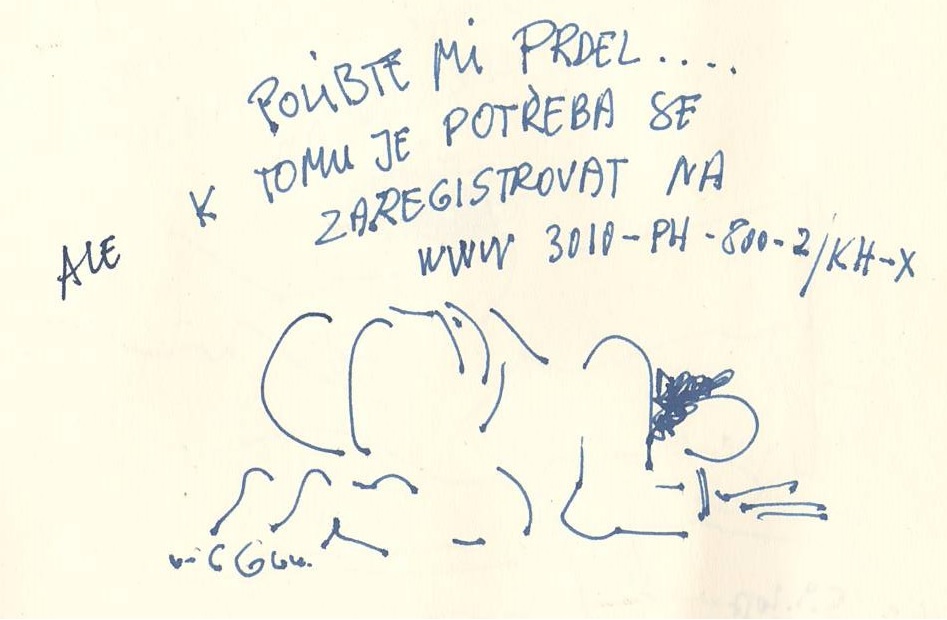 POLIBTE MI PRDEL....
K TOMU JE POTŘEBA SE
ZAREGISTROVAT NA
ALE
WWW 3010-PH-800-2/KH-X